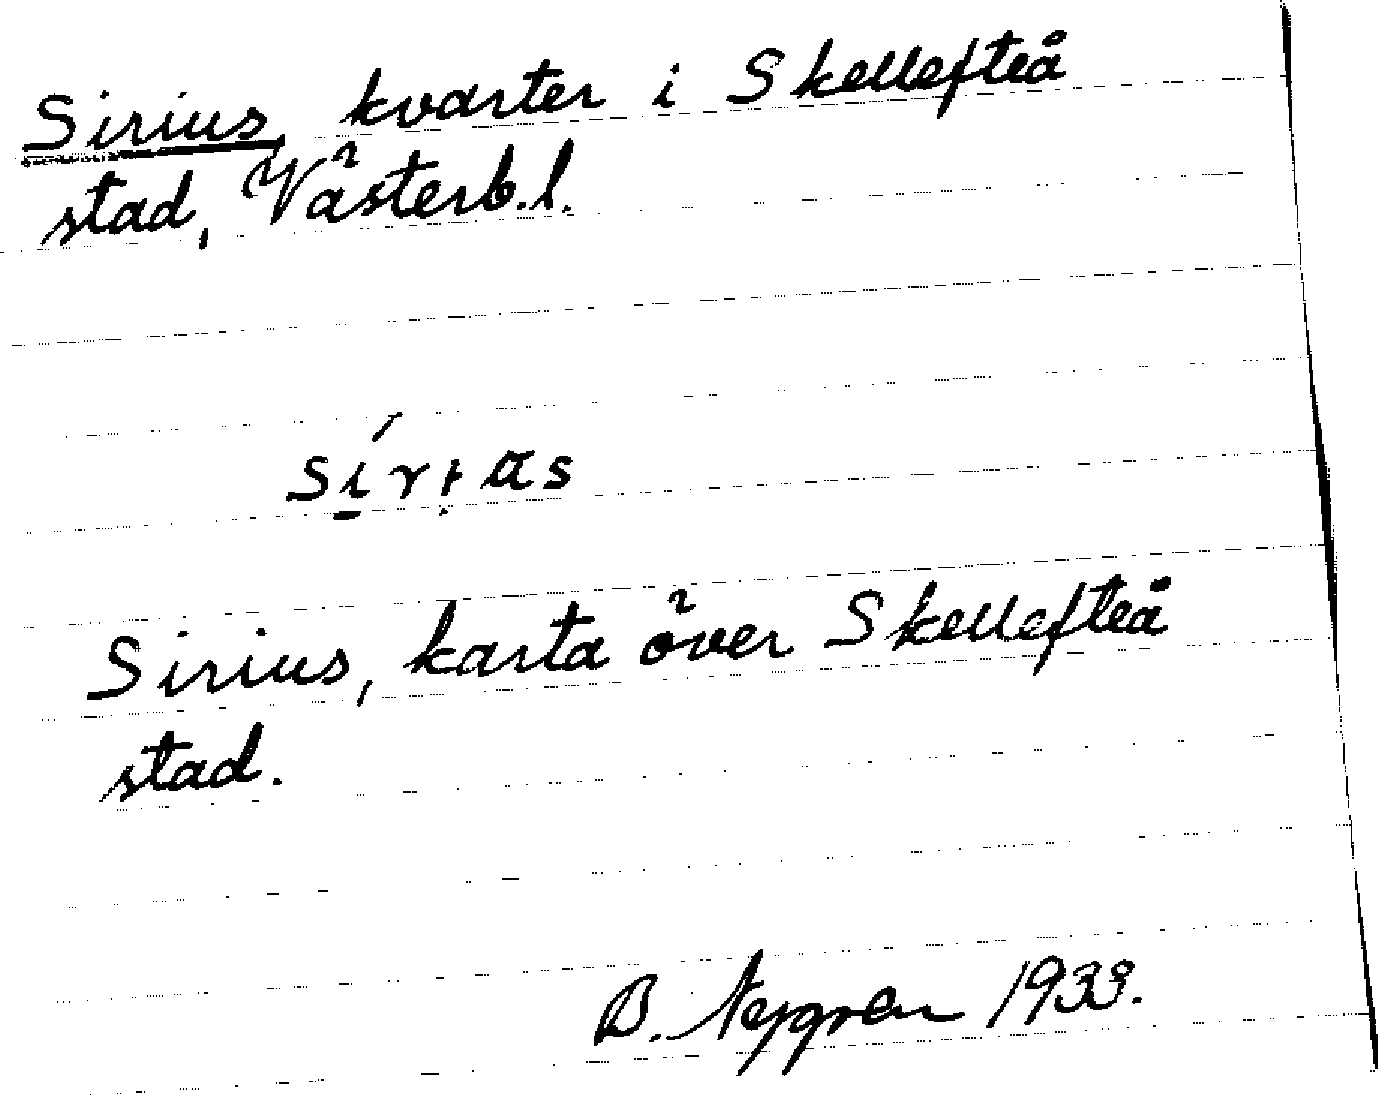 Sirius, kvarter i Skellefteå
stad, Västerb.l.
Sirius, karta över Skellefteå
stad.
B. 1933.